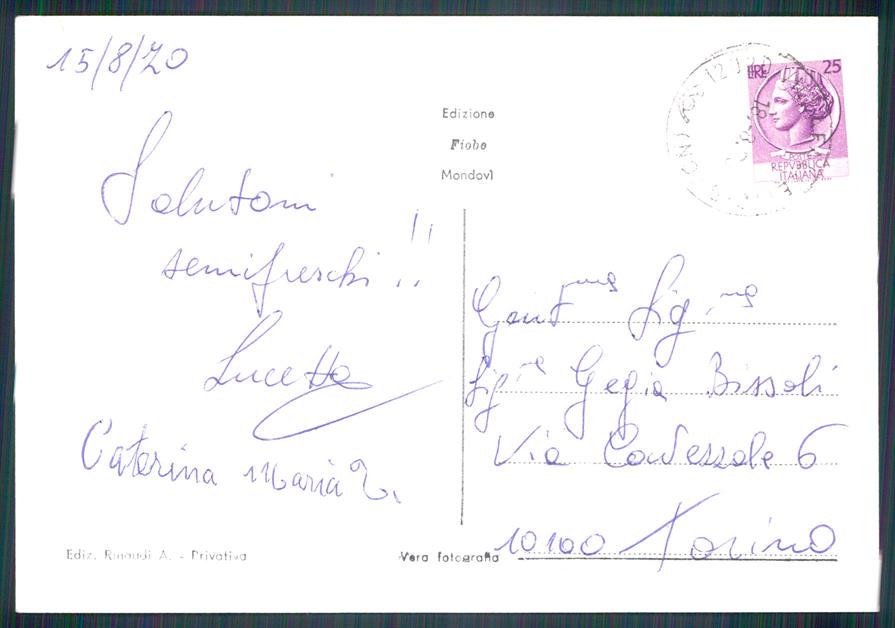 15/8/70
Edizione
Fiobo
Mondovì
LIRE 25
POSTE
REPVBBLICA
ITALIANA
Salutoni
semifreschi!!
Lucetta
Caterina Maria
Gent.ma Sig.na
Sig.na Gegia Bissoli
Via 6
10100 Torino
Ediz. Rinaudi A. - Privativa
Vera fotografia